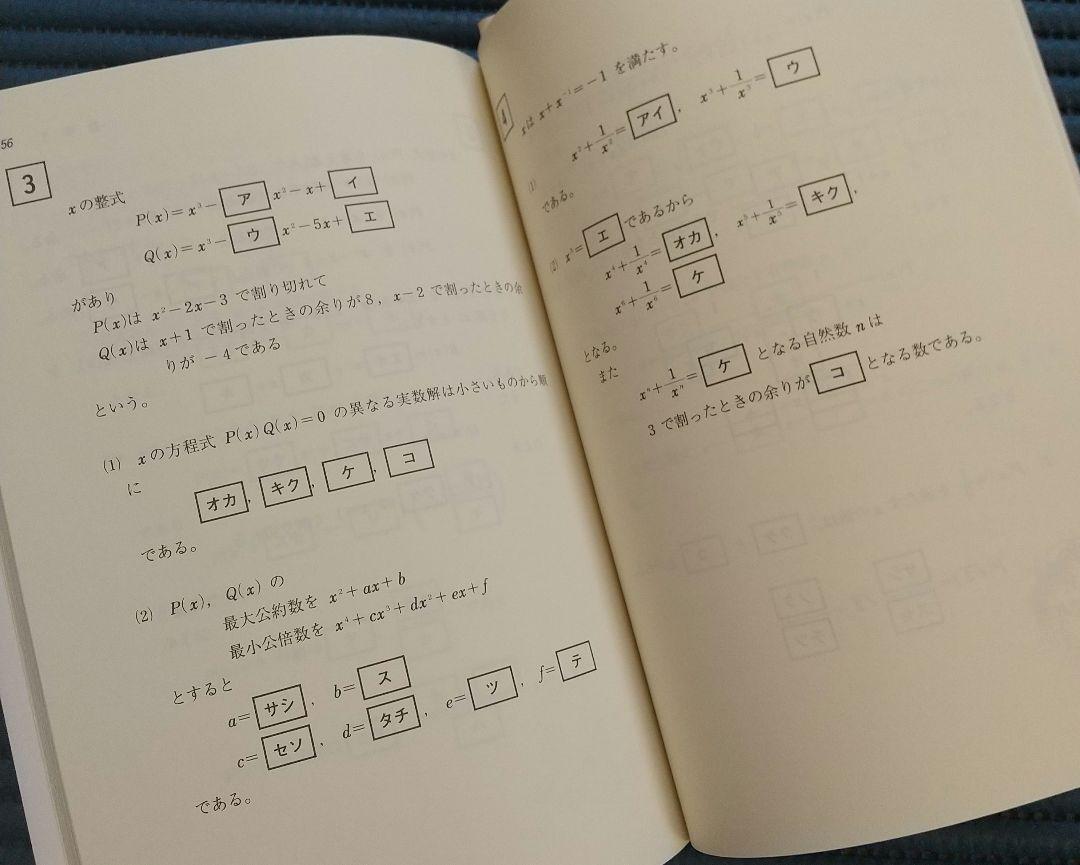 56
3
xの整式
P(x)=x³－ア x²－x＋イ
Q(x)=x³－ウ x²－5x＋エ
があり
P(x)は x²－2x－3 で割り切れて
Q(x)は x＋1 で割ったときの余りが8，x－2 で割ったときの余
りが －4である
という。
(1) xの方程式 P(x)Q(x)=0 の異なる実数解は小さいものから順
に
オカ，キク，ケ，コ
である。
(2) P(x)，Q(x) の
最大公約数を x²＋ax＋b
最小公倍数を x⁴＋cx³＋dx²＋ex＋f
とすると
a=サシ， b=ス
c=セソ， d=タチ， e=ツ， f=テ
である。
4
xは x＋x⁻¹=－1 を満たす。
(1) x²＋1/x²=アイ， x³＋1/x³=ウ
である。
(2) x³=エであるから
x⁴＋1/x⁴=オカ， x⁵＋1/x⁵=キク，
x⁶＋1/x⁶=ケ
となる。
また
xⁿ＋1/xⁿ=ケ となる自然数 n は
3で割ったときの余りがコとなる数である。